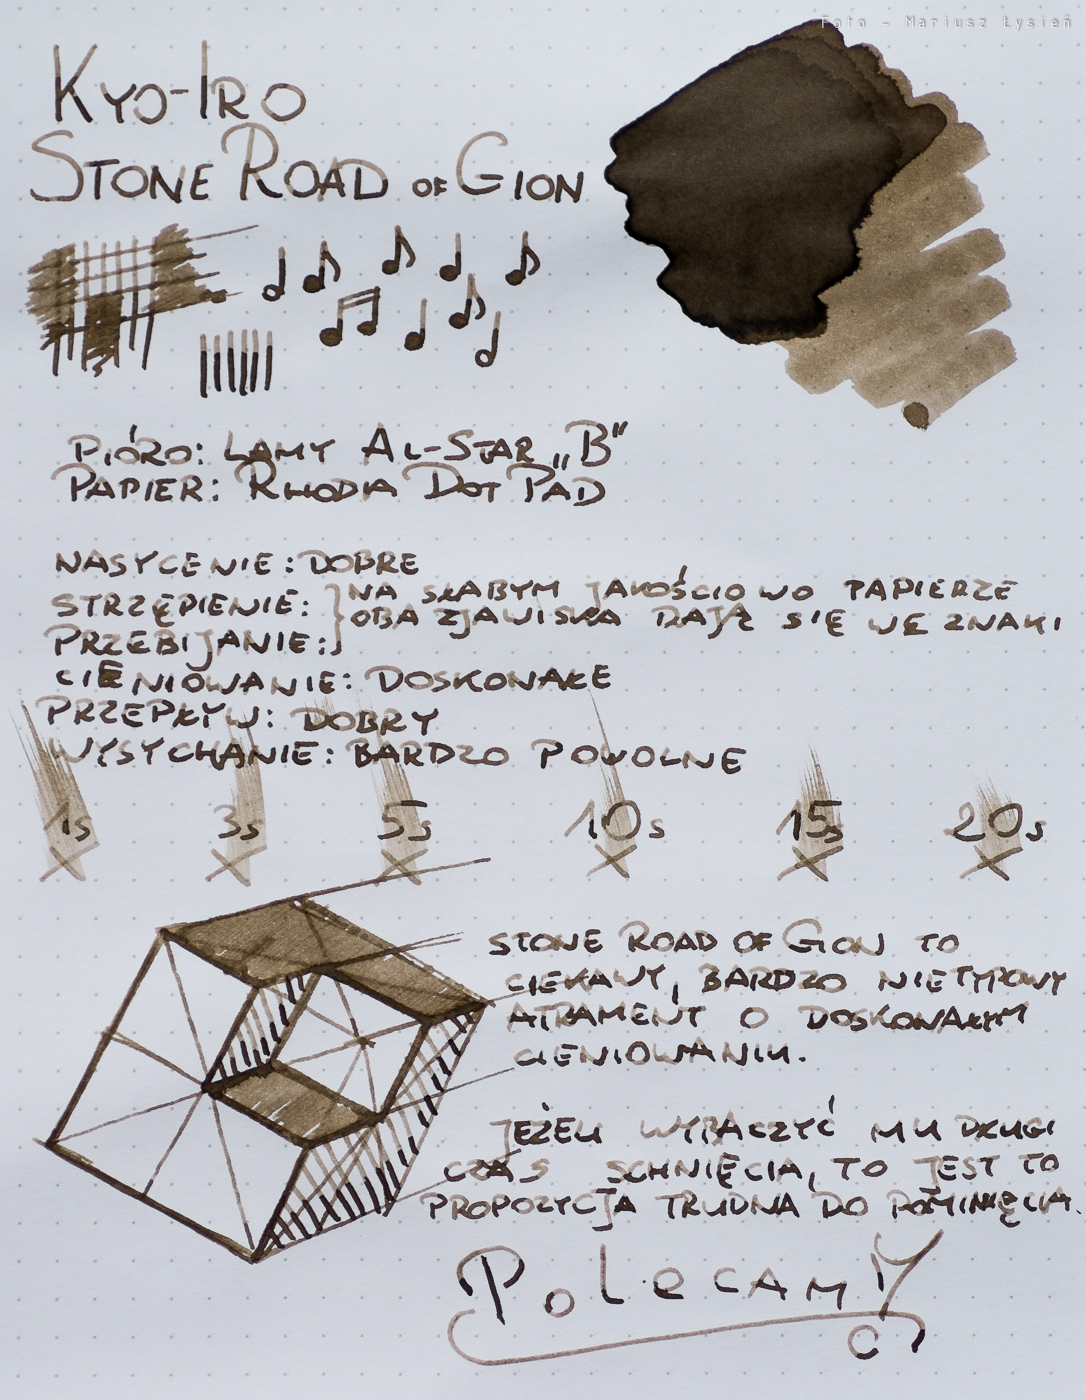 Foto - Mariusz Łysień
Kyo-Iro
Stone Road of Gion
Pióro: Lamy Al-Star „B"
Papier: Rhodia Dot Pad
Nasycenie: dobre
Strzępienie: } na słabym jakościowo papierze
Przebijanie: } oba zjawiska dają się we znaki
Cieniowanie: doskonałe
Przepływ: dobry
Wysychanie: bardzo powolne
1s 3s 5s 10s 15s 20s
Stone Road of Gion to
ciekawy, bardzo nietypowy
atrament o doskonałym
cieniowaniu.
Jeżeli wybaczyć mu długi
czas schnięcia, to jest to
propozycja trudna do pominięcia.
Polecamy